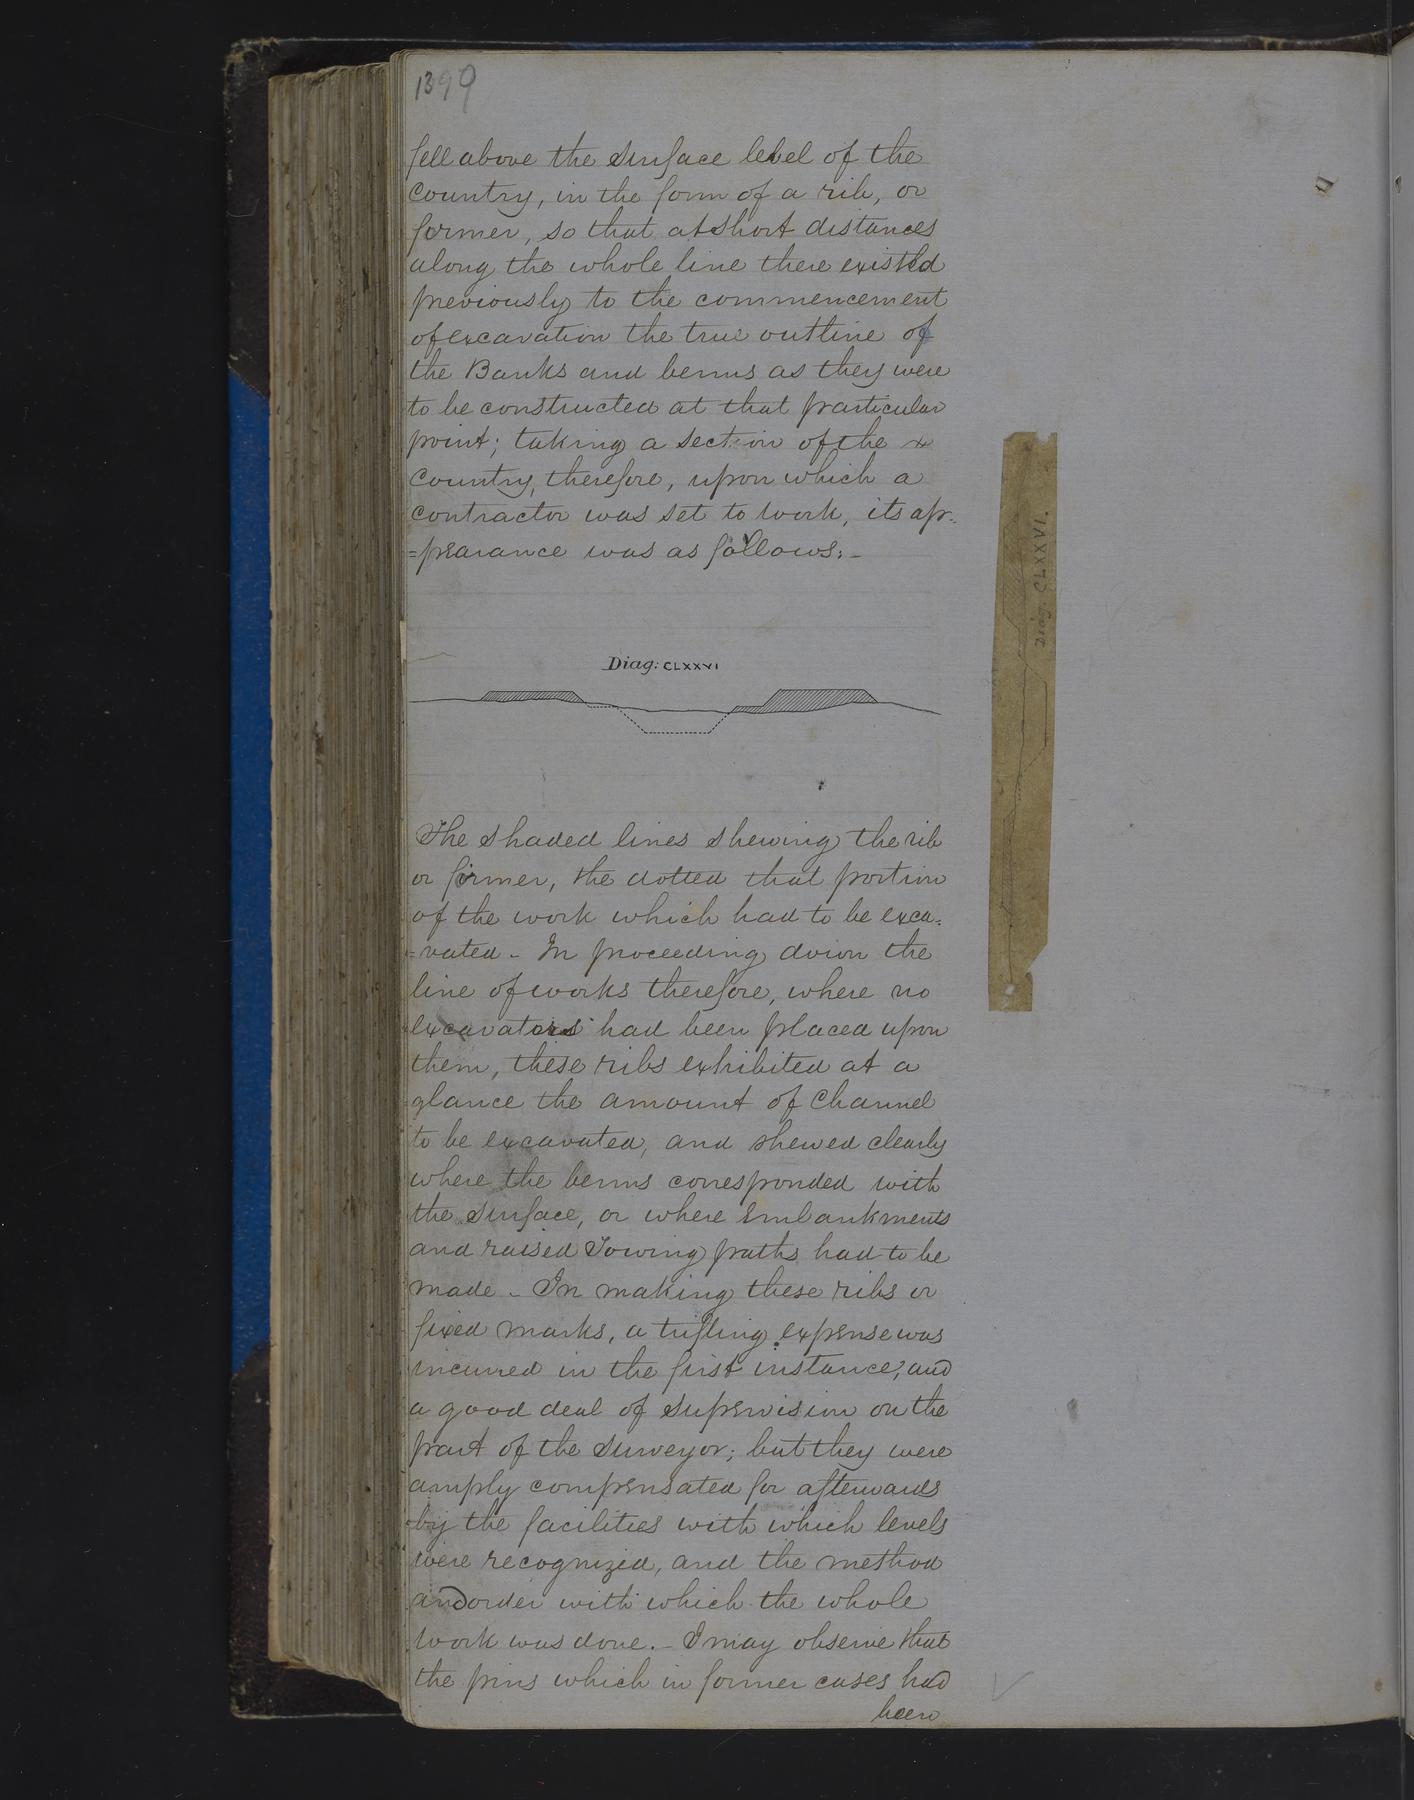 1399
fell above the surface level of the
country, in the form of a rib, or
former, so that at short distances
along the whole line there existed
previously to the commencement
of excavation the true outline of
the Banks and berms as they were
to be constructed at that particular
point; taking a section of the x
country, therefore, upon which a
contractor was set to work, its ap=
=pearance was as follows:-
Diag: CLXXVI
Diag. CLXXVI.
The shaded lines shewing the rib
or former, the dotted that portion
of the work which had to be exca=
=vated - In proceeding down the
line of works therefore, where no
excavators had been placed upon
them, these ribs exhibited at a
glance the amount of Channel
to be excavated, and shewed clearly
where the berms corresponded with
the surface, or where Embankments
and raised Towing paths had to be
made - In making these ribs or
fixed marks, a trifling expense was
incurred in the first instance, and
a good deal of supervision on the
part of the Surveyor; but they were
amply compensated for afterwards
by the facilities with which levels
were recognized, and the method
and order with which the whole
work was done. - I may observe that
the pins which in former cases had
been